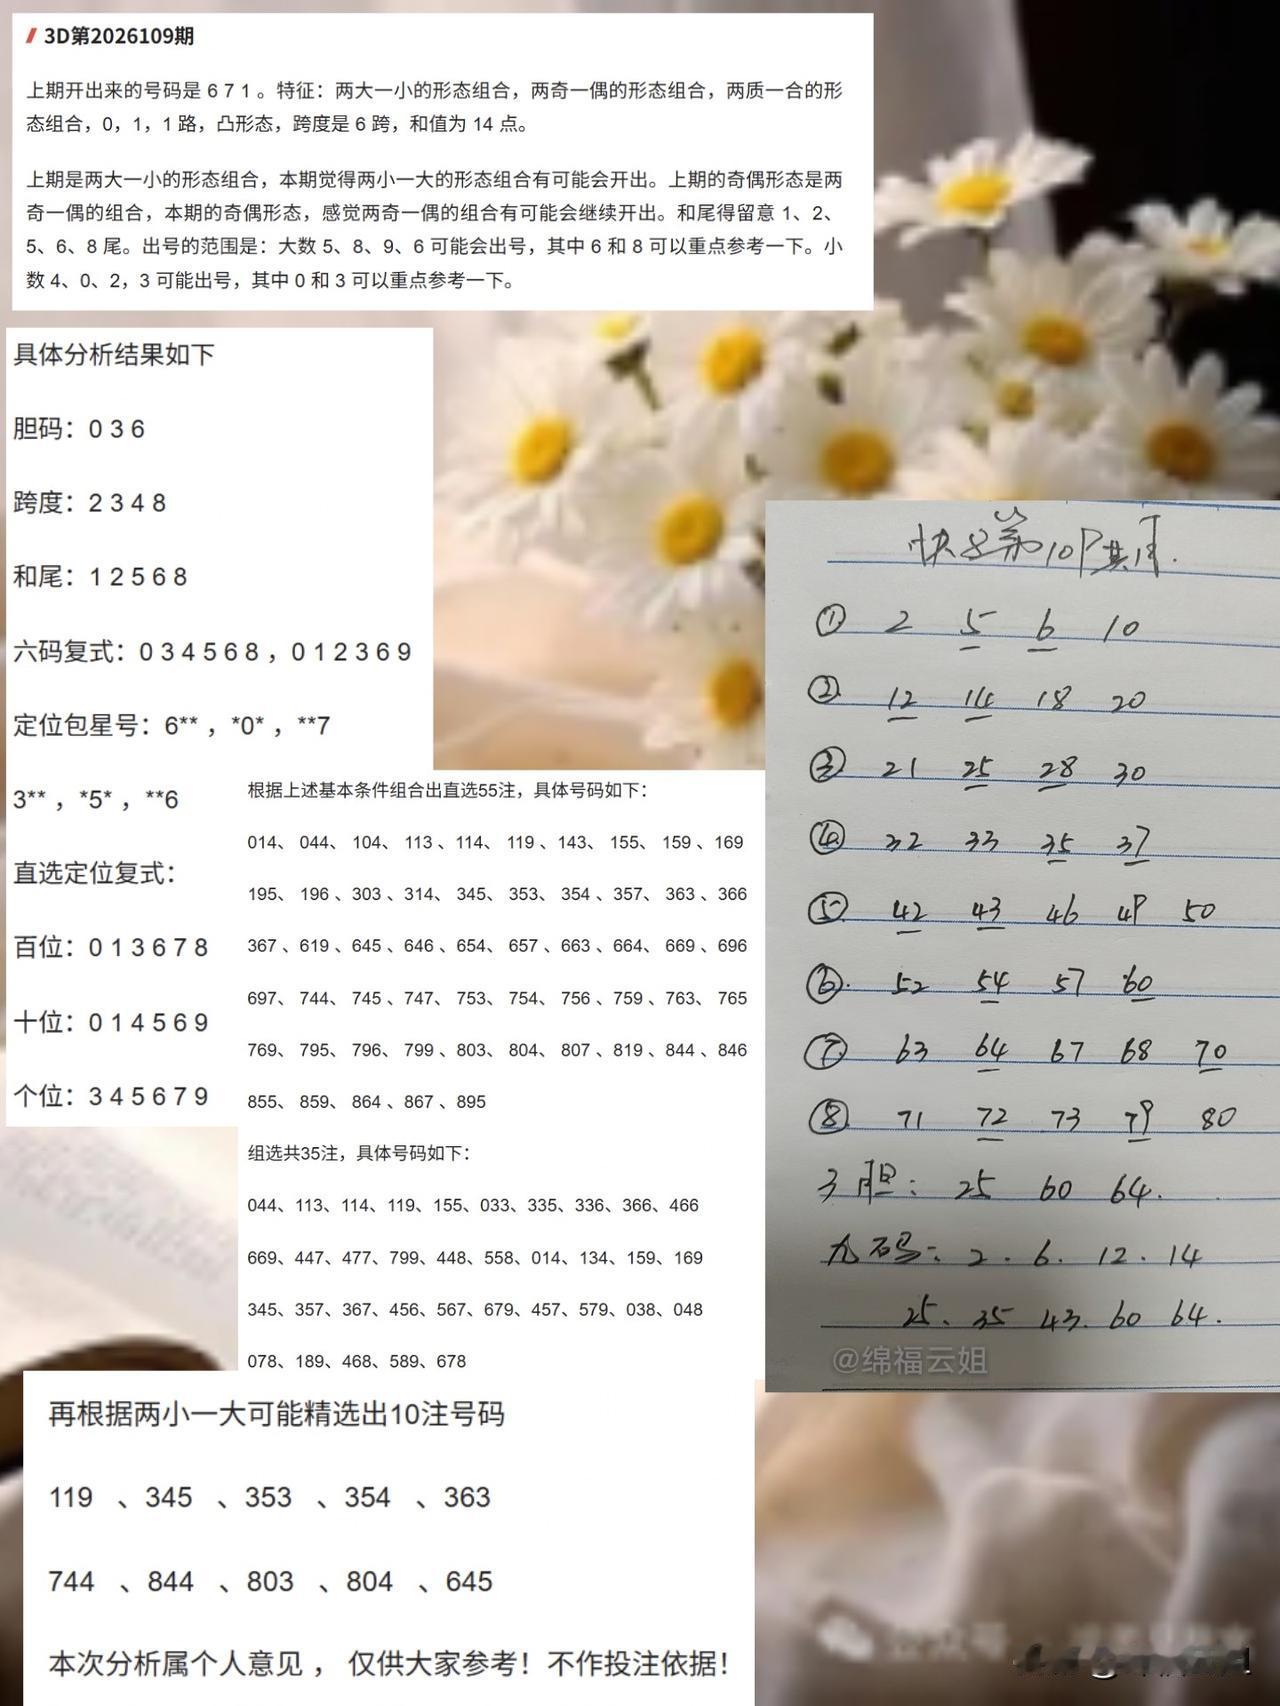 3D第2026109期
上期开出来的号码是 6 7 1 。特征：两大一小的形态组合，两奇一偶的形态组合，两质一合的形
态组合，0，1，1 路，凸形态，跨度是 6 跨，和值为 14 点。
上期是两大一小的形态组合，本期觉得两小一大的形态组合有可能会开出。上期的奇偶形态是两
奇一偶的组合，本期的奇偶形态，感觉两奇一偶的组合有可能会继续开出。和尾得留意 1、2、
5、6、8 尾。出号的范围是：大数 5、8、9、6 可能会出号，其中 6 和 8 可以重点参考一下。小
数 4、0、2，3 可能出号，其中 0 和 3 可以重点参考一下。
具体分析结果如下
胆码：0 3 6
跨度：2 3 4 8
和尾：1 2 5 6 8
六码复式：0 3 4 5 6 8 ，0 1 2 3 6 9
定位包星号：6** ，*0* ，**7
3** ，*5* ，**6
直选定位复式：
百位：0 1 3 6 7 8
十位：0 1 4 5 6 9
个位：3 4 5 6 7 9
根据上述基本条件组合出直选55注，具体号码如下：
014、 044、 104、 113 、114、 119 、143、 155、 159 、169
195、 196 、303 、314、 345、 353、 354 、357、 363 、366
367 、619 、645 、646 、654、 657 、663 、664、 669 、696
697、 744、 745 、747、 753、 754、 756 、759 、763、 765
769、 795、 796、 799 、803、 804、 807 、819 、844 、846
855、 859、 864 、867 、895
组选共35注，具体号码如下：
044、113、114、119、155、033、335、336、366、466
669、447、477、799、448、558、014、134、159、169
345、357、367、456、567、679、457、579、038、048
078、189、468、589、678
再根据两小一大可能精选出10注号码
119 、345 、353 、354 、363
744 、844 、803 、804 、645
本次分析属个人意见 ， 仅供大家参考！不作投注依据！
快8第109期.
① 2 5 6 10
② 12 14 18 20
③ 21 25 28 30
④ 32 33 35 37
⑤ 42 43 46 49 50
⑥. 52 54 57 60
⑦ 63 64 67 68 70
⑧ 71 72 73 79 80
3胆： 25 60 64.
九码： 2. 6. 12. 14
25. 35 43. 60 64.
@绵福云姐
公众号